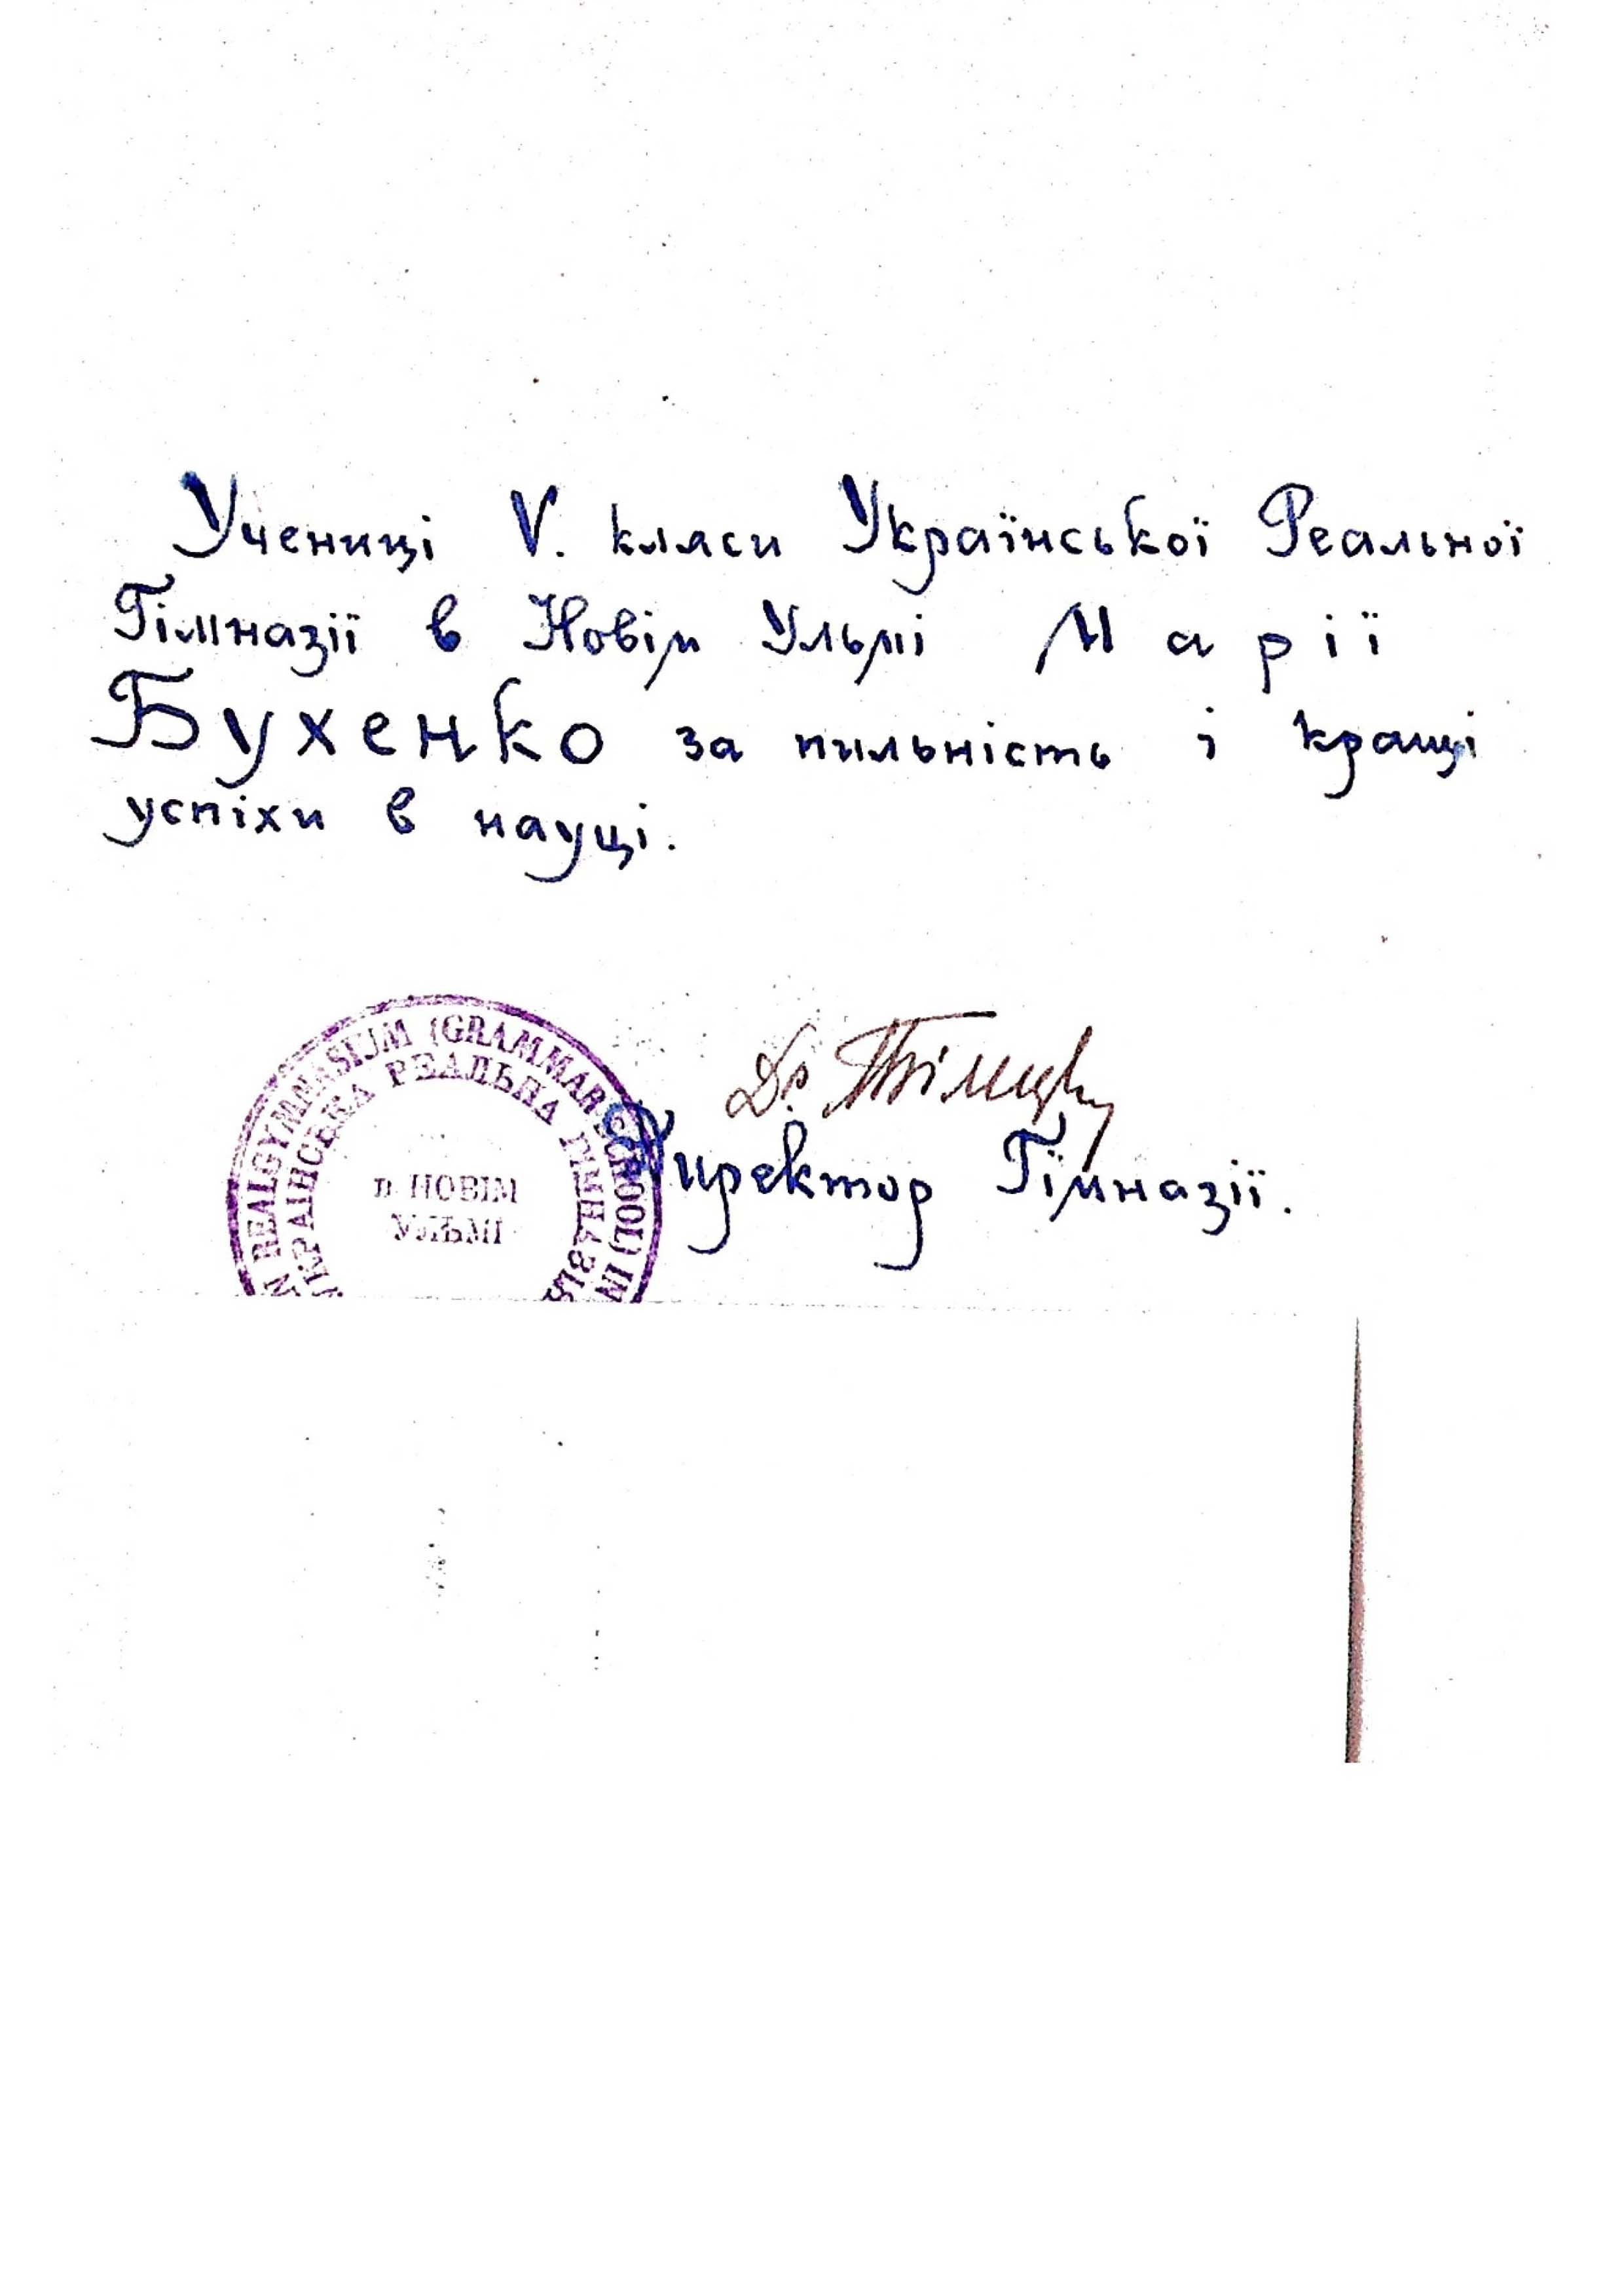 Учениці V. кляси Української Реальної
Гімназії в Новім Ульмі Марії
Бухенко за пильність і кращі
успіхи в науці.
REALGYMNASIUM (GRAMMAR SCHOOL) IN
УКРАЇНСЬКА РЕАЛЬНА ГІМНАЗІЯ
в НОВІМ
УЛЬМІ
Dr.
Директор Гімназії.